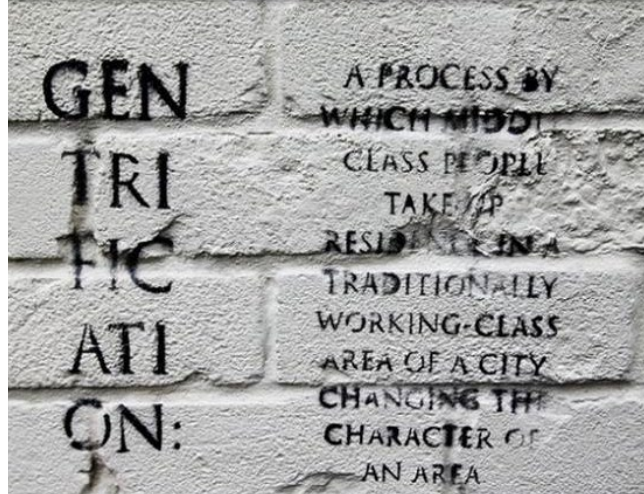 GEN
TRI
FIC
ATI
ON:
A PROCESS BY
WHICH MIDDL
CLASS PEOPLE
TAKE UP
RESIDENCE IN A
TRADITIONALLY
WORKING-CLASS
AREA OF A CITY
CHANGING THE
CHARACTER OF
AN AREA